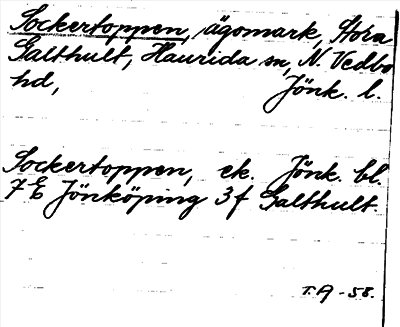 Sockertoppen, ägomark, Stora
Galthult, Haurida sn, N. Vedbo
hd, Jönk. l.
Sockertoppen, ek. Jönk. bl.
7 E Jönköping 3 f Galthult.
T.A -58.